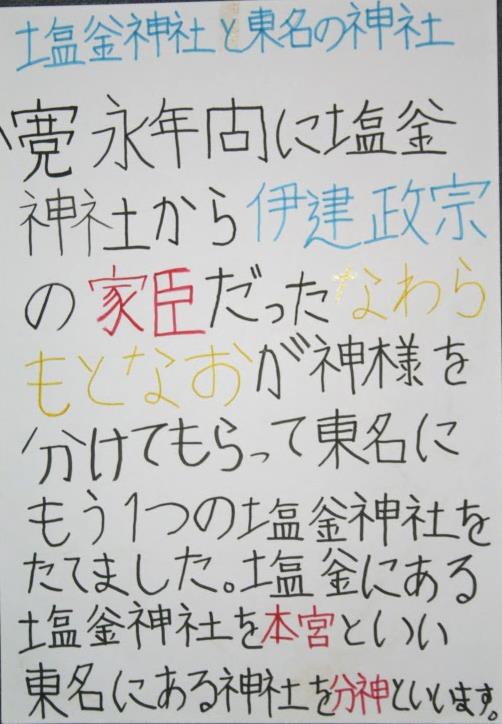 塩釜神社と東名の神社
寛永年間に塩釜
神社から伊建政宗
の家臣だったなわら
もとなおが神様を
分けてもらって東名に
もう1つの塩釜神社を
たてました。塩釜にある
塩釜神社を本宮といい
東名にある神社を分神といいます。